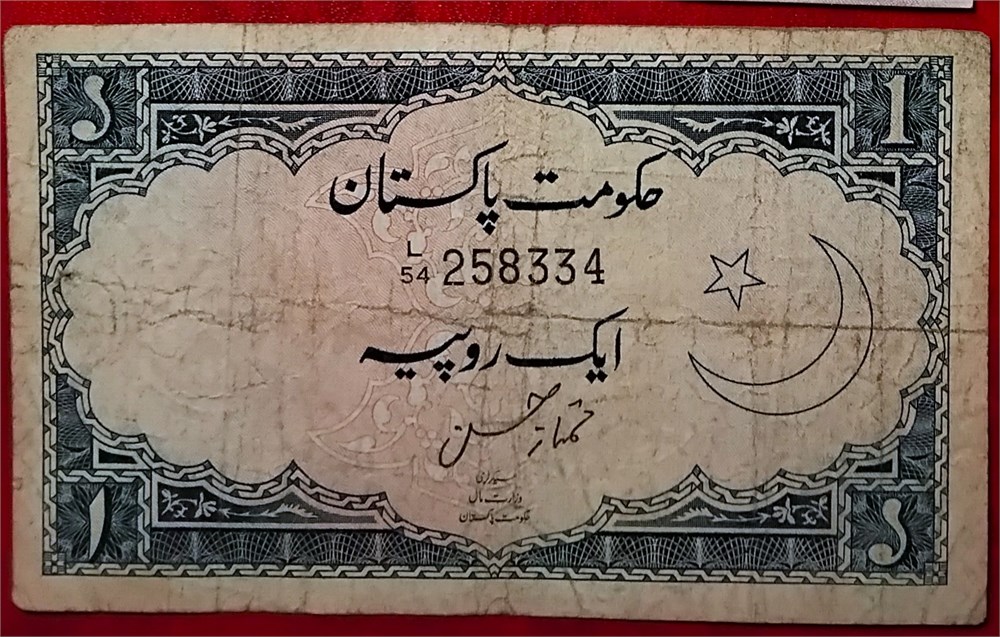 ১ 1
حکومت پاکستان
L/54 258334
ایک روپیہ
ممتاز حسن
سیکرٹری
وزارت مال
حکومت پاکستان
۱ ১